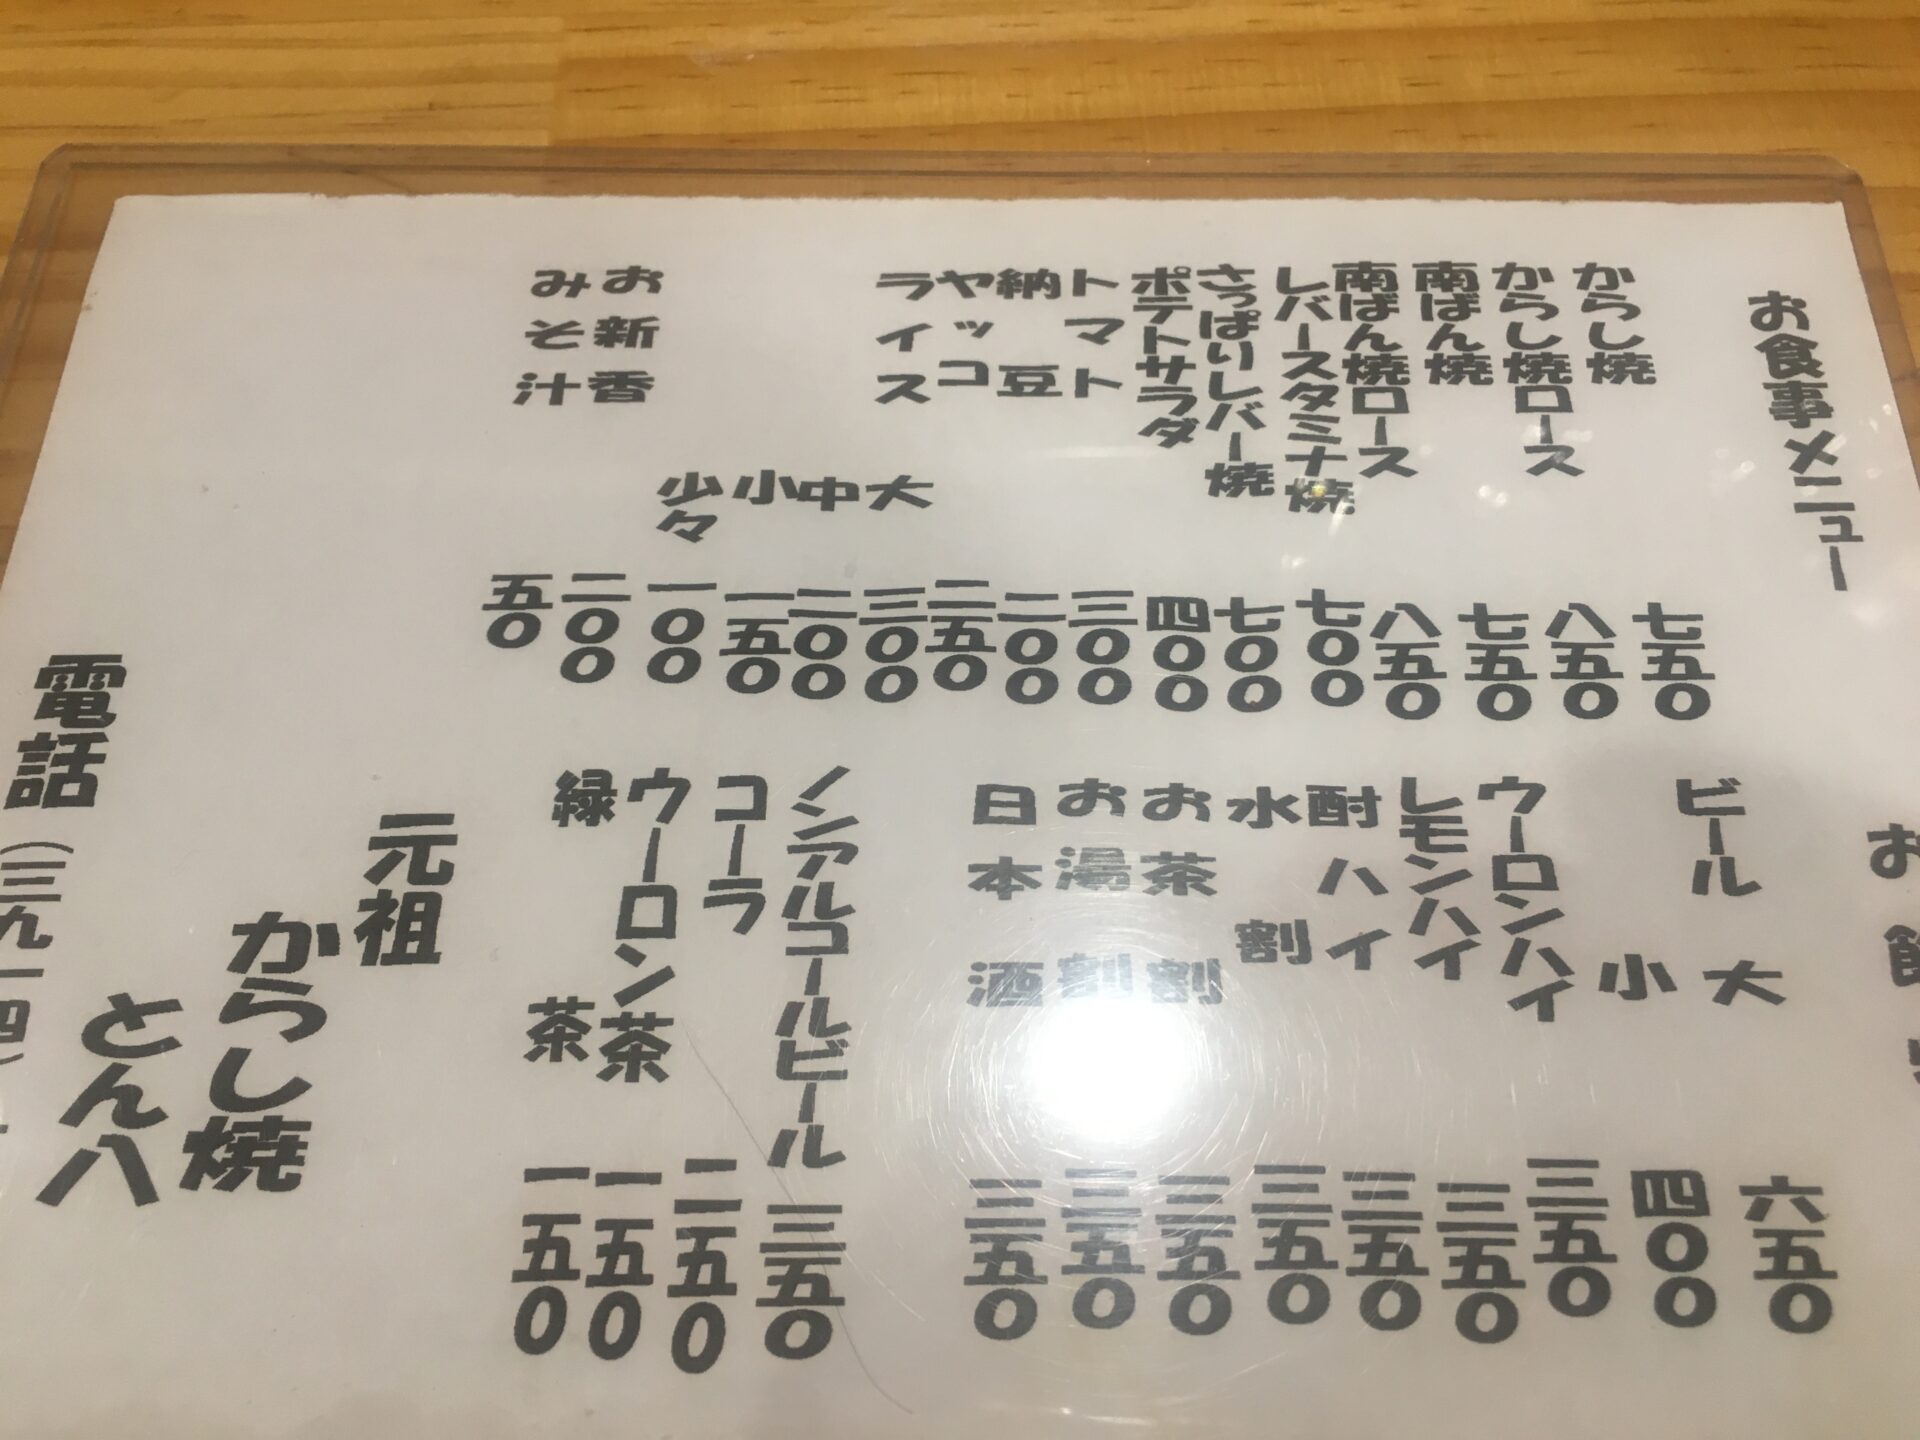 お食事メニュー
からし焼 七五〇
からし焼ロース 八五〇
南ばん焼 七五〇
南ばん焼ロース 八五〇
レバースタミナ焼 七〇〇
さっぱりレバー焼 七〇〇
ポテトサラダ 四〇〇
トマト 三〇〇
納豆 二〇〇
ヤッコ 二五〇
ライス 大 三〇〇
中 二〇〇
小 一五〇
少々 一〇〇
お新香 二〇〇
みそ汁 五〇
お飲
ビール 大 六五〇
小 四〇〇
ウーロンハイ 三五〇
レモンハイ 三五〇
酎ハイ 三五〇
水割 三五〇
お茶割 三五〇
お湯割 三五〇
日本酒 三五〇
ノンアルコールビール 三五〇
コーラ 二五〇
ウーロン茶 一五〇
緑茶 一五〇
元祖
からし焼
とん八
電話(三九一四)